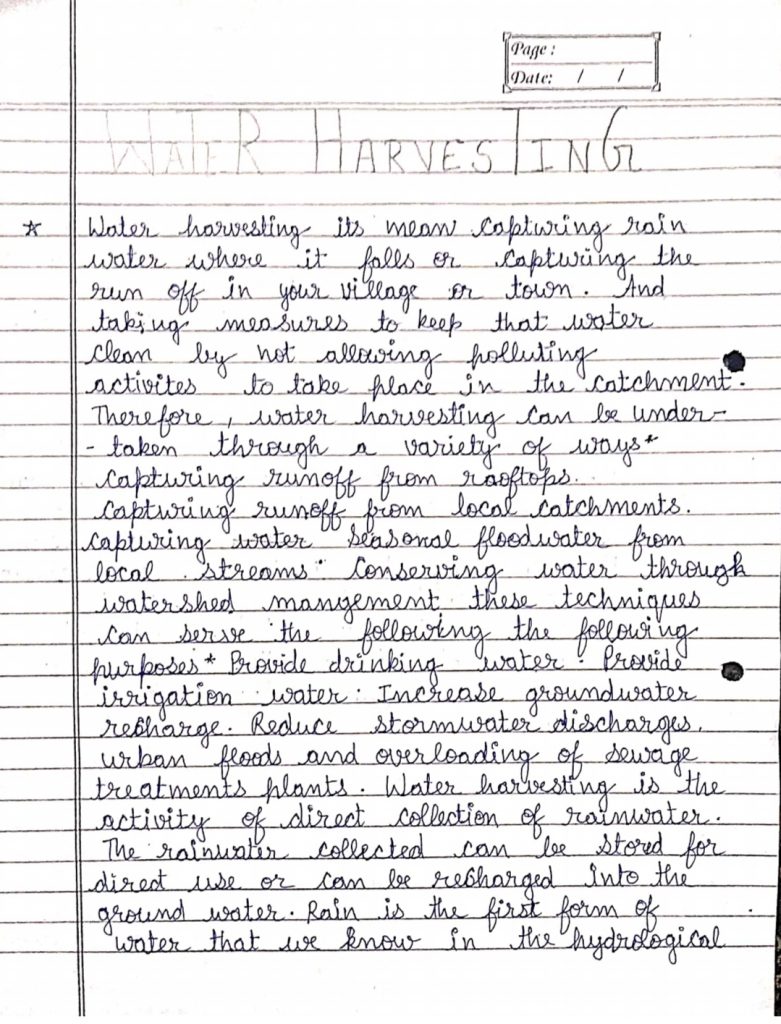 Page :
Date: / /
WATER HARVESTING
☆ Water harvesting its mean capturing rain
water where it falls or capturing the
run off in your village or town. And
taking measures to keep that water
clean by not allowing polluting
activites to take place in the catchment.
Therefore, water harvesting can be under-
- taken through a variety of ways*
capturing runoff from rooftops.
capturing runoff from local catchments.
capturing water seasonal floodwater from
local streams. Conserving water through
watershed mangement these techniques
can serve the following the following
purposes* Provide drinking water. Provide
irrigation water. Increase groundwater
recharge. Reduce stormwater discharges,
urban floods and overloading of sewage
treatments plants. Water harvesting is the
activity of direct collection of rainwater.
The rainwater collected can be stored for
direct use or can be recharged into the
ground water. Rain is the first form of
water that we know in the hydrological